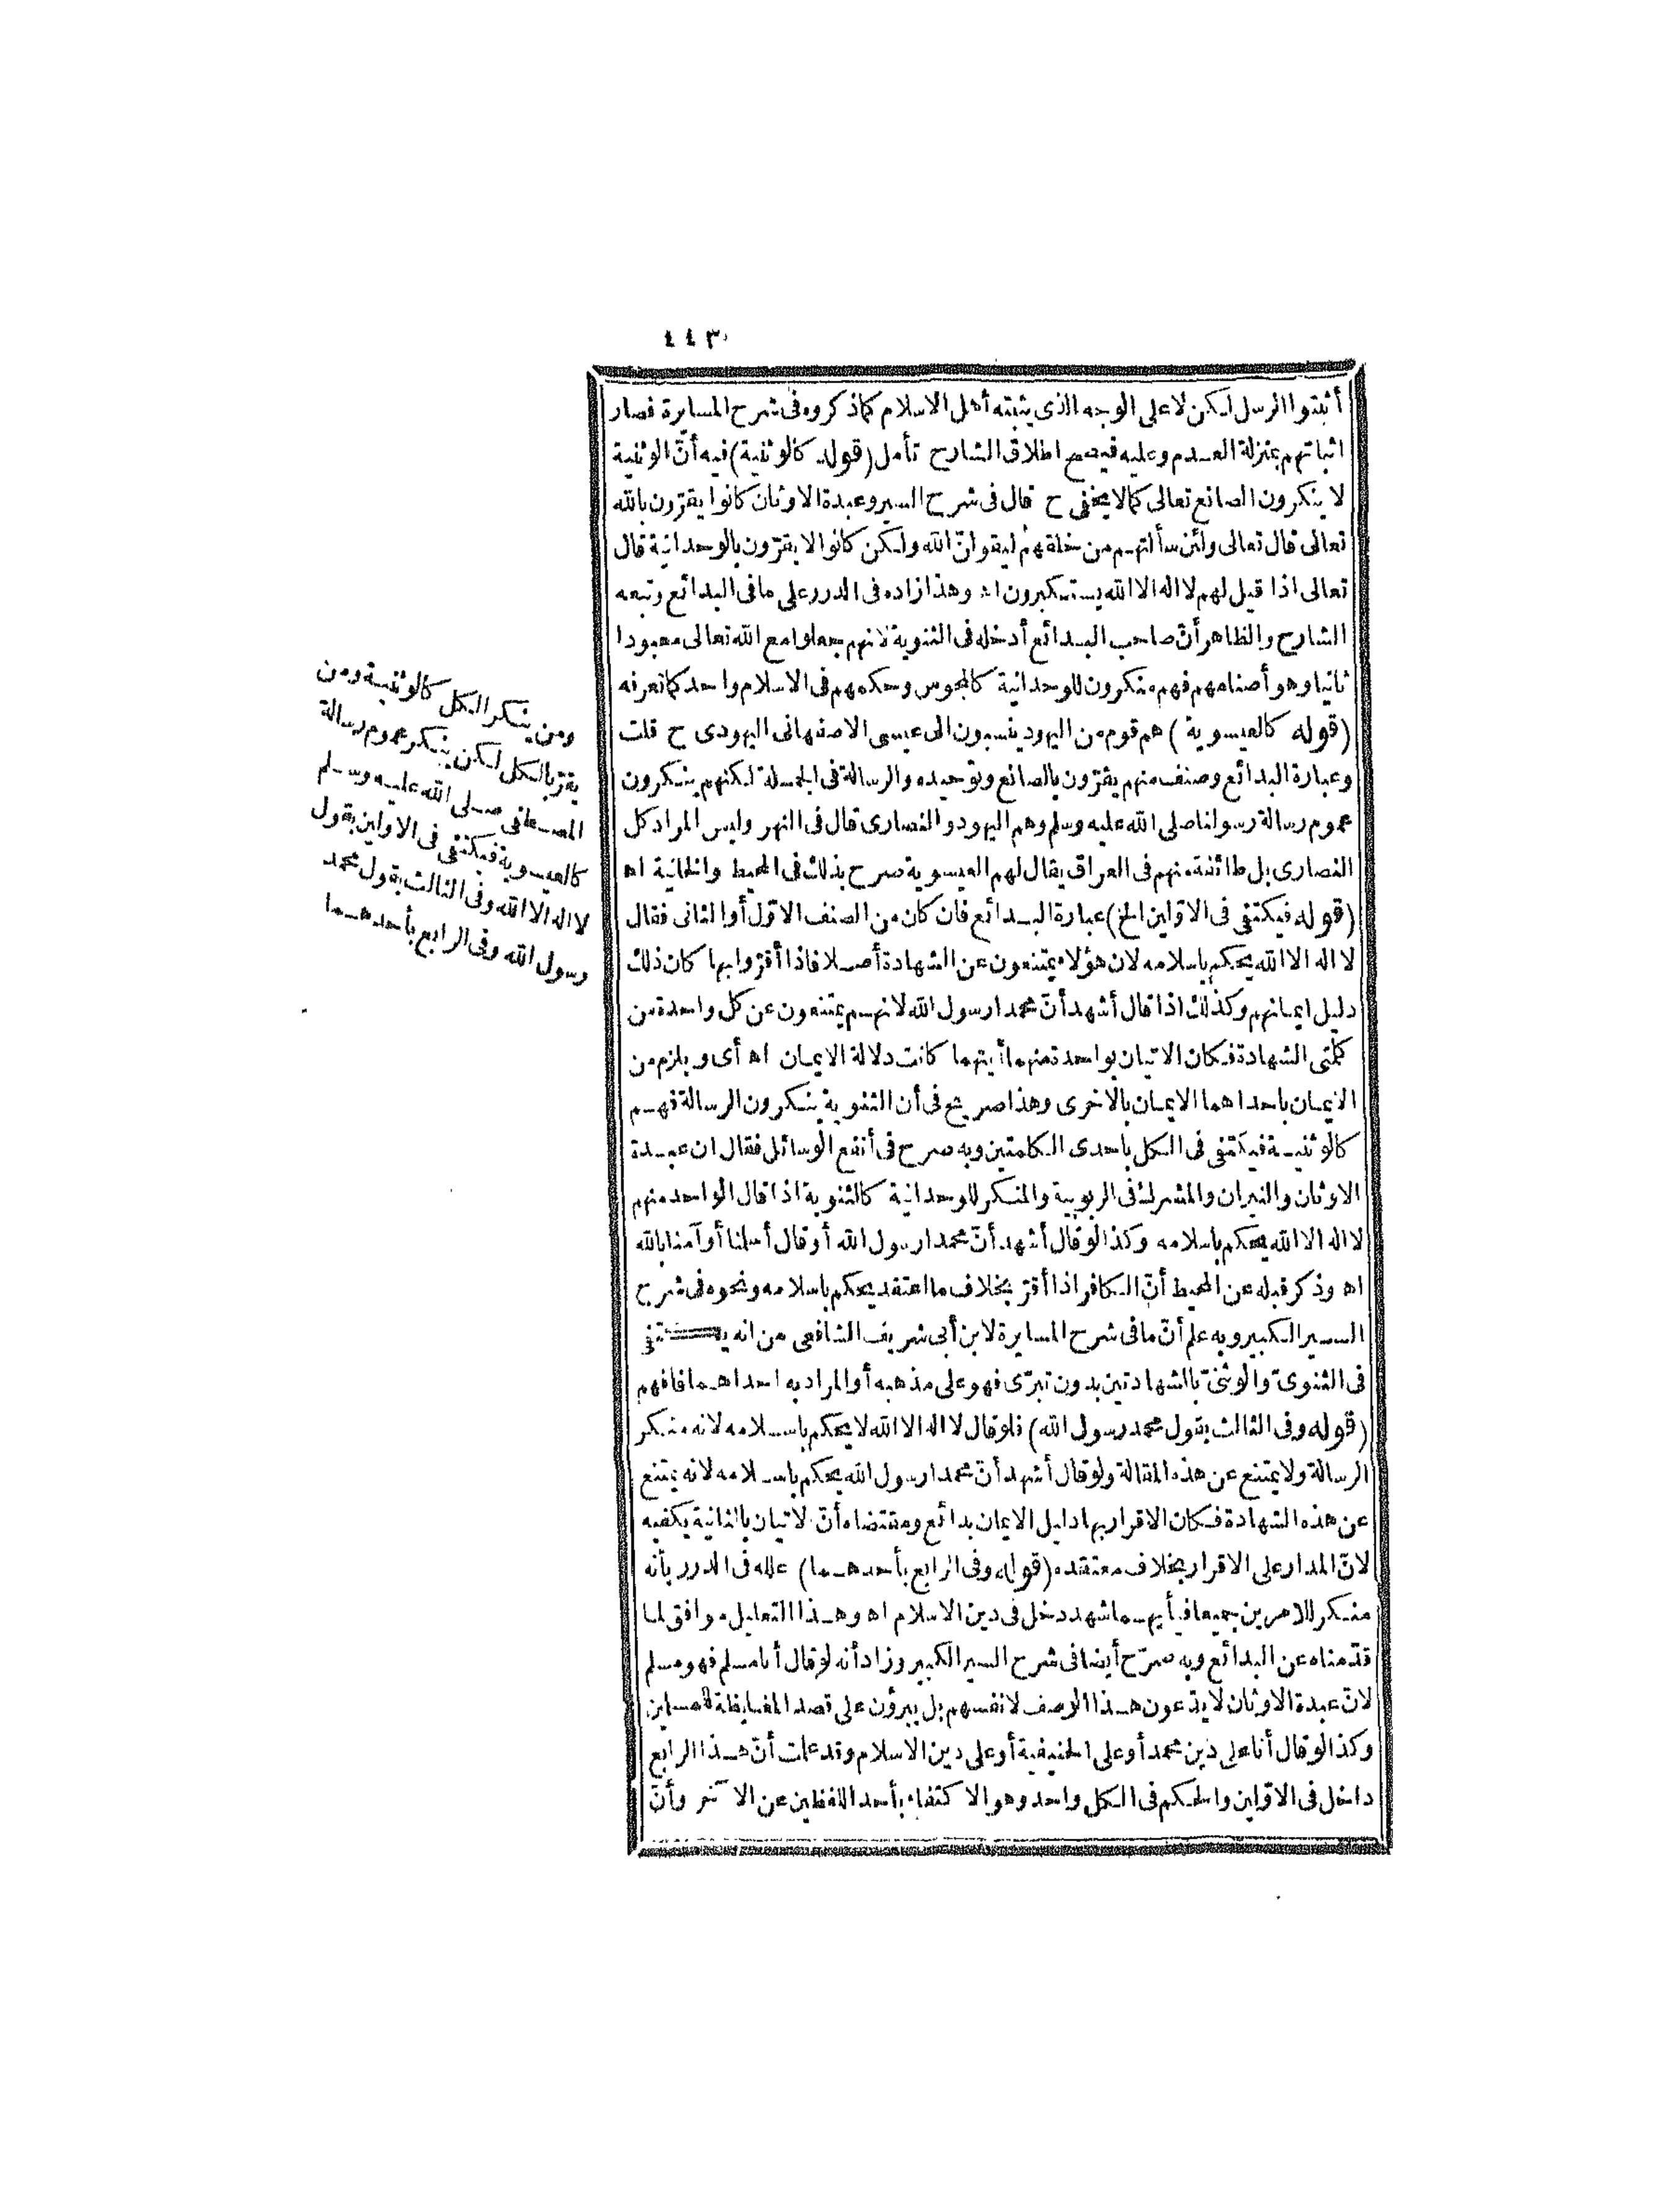 ٤٤٣
أثبتوا الرسل لكن لا على الوجه الذى يثبته أهل الاسلام كما ذكروه فى شرح المسايرة فصار
اثباتهم بمنزلة العدم وعليه فيصح اطلاق الشارح تأمل (قوله كالوثنية) فيه أنّ الوثنية
لا ينكرون الصانع تعالى كما لا يخفى ح قال فى شرح السير وعبدة الاوثان كانوا يقرّون بالله
تعالى قال تعالى ولئن سألتهم من خلقهم ليقولنّ الله ولكن كانوا لا يقرّون بالوحدانية قال
تعالى اذا قيل لهم لا اله الا الله يستكبرون اه وهذا زاده فى الدرر على ما فى البدائع وتبعه
الشارح والظاهر أنّ صاحب البدائع أدخله فى الثنوية لانهم جعلوا مع الله تعالى معبودا
ثانيا وهو أصنامهم فهم منكرون للوحدانية كالمجوس وحكمهم فى الاسلام واحد كما تعرفه
(قوله كالعيسوية) هم قوم من اليهود ينسبون الى عيسى الاصفهانى اليهودى ح قلت
وعبارة البدائع وصنف منهم يقرّون بالصانع وتوحيده والرسالة فى الجملة لكنهم ينكرون
عموم رسالة رسولنا صلى الله عليه وسلم وهم اليهود والنصارى قال فى النهر وليس المراد كل
النصارى بل طائفة منهم فى العراق يقال لهم العيسوية صرح بذلك فى المحيط والخانية اه
(قوله فيكتفى فى الاوّلين الخ) عبارة البدائع فان كان من الصنف الاوّل أو الثانى فقال
لا اله الا الله يحكم باسلامه لان هؤلاء يمتنعون عن الشهادة أصلا فاذا أقرّوا بها كان ذلك
دليل ايمانهم وكذلك اذا قال أشهد أنّ محمدا رسول الله لانهم يمتنعون عن كل واحدة من
كلمتى الشهادة فكان الاتيان بواحدة منهما أيتهما كانت دلالة الايمان اه أى ويلزم من
الايمان باحداهما الايمان بالاخرى وهذا صريح فى أن الثنوية ينكرون الرسالة فهم
كالوثنية فيكتفى فى الكل باحدى الكلمتين وبه صرح فى أنفع الوسائل فقال ان عبدة
الاوثان والنيران والمشرك فى الربوبية والمنكر للوحدانية كالثنوية اذا قال الواحد منهم
لا اله الا الله يحكم باسلامه وكذا لو قال أشهد أنّ محمدا رسول الله أو قال أسلمنا أو آمنا بالله
اه وذكر قبله عن المحيط أنّ الكافر اذا أقرّ بخلاف ما اعتقد يحكم باسلامه ونحوه فى شرح
السير الكبير وبه علم أنّ ما فى شرح المسايرة لابن أبى شريف الشافعى من انه يكتفى
فى الثنوىّ والوثنىّ بالشهادتين بدون تبرّى فهو على مذهبه أو المراد به احداهما فافهم
(قوله وفى الثالث بقول محمد رسول الله) فلو قال لا اله الا الله لا يحكم باسلامه لانه منكر
الرسالة ولا يمتنع عن هذه المقالة ولو قال أشهد أنّ محمدا رسول الله يحكم باسلامه لانه يمتنع
عن هذه الشهادة فكان الاقرار بها دليل الايمان بدائع ومقتضاه أنّ الاتيان بالثانية يكفيه
لانّ المدار على الاقرار بخلاف معتقده (قوله وفى الرابع بأحدهما) علله فى الدرر بأنه
منكر للامرين جميعا فبأيهما شهد دخل فى دين الاسلام اه وهذا التعليل موافق لما
قدّمناه عن البدائع وبه صرّح أيضا فى شرح السير الكبير وزاد أنه لو قال أنا مسلم فهو مسلم
لانّ عبدة الاوثان لا يدّعون هذا الوصف لانفسهم بل يبرؤن على قصد المغايظة للمسلمين
وكذا لو قال أنا على دين محمد أو على الحنيفية أو على دين الاسلام وقد علمت أنّ هذا الرابع
داخل فى الاوّلين والحكم فى الكل واحد وهو الاكتفاء بأحد اللفظين عن الآخر وأنّ
ومن ينكر الكل كالوثنية ومن
يقرّ بالكل لكن ينكر عموم رسالة
المصطفى صلى الله عليه وسلم
كالعيسوية فيكتفى فى الاولين بقول
لا اله الا الله وفى الثالث بقول محمد
رسول الله وفى الرابع بأحدهما